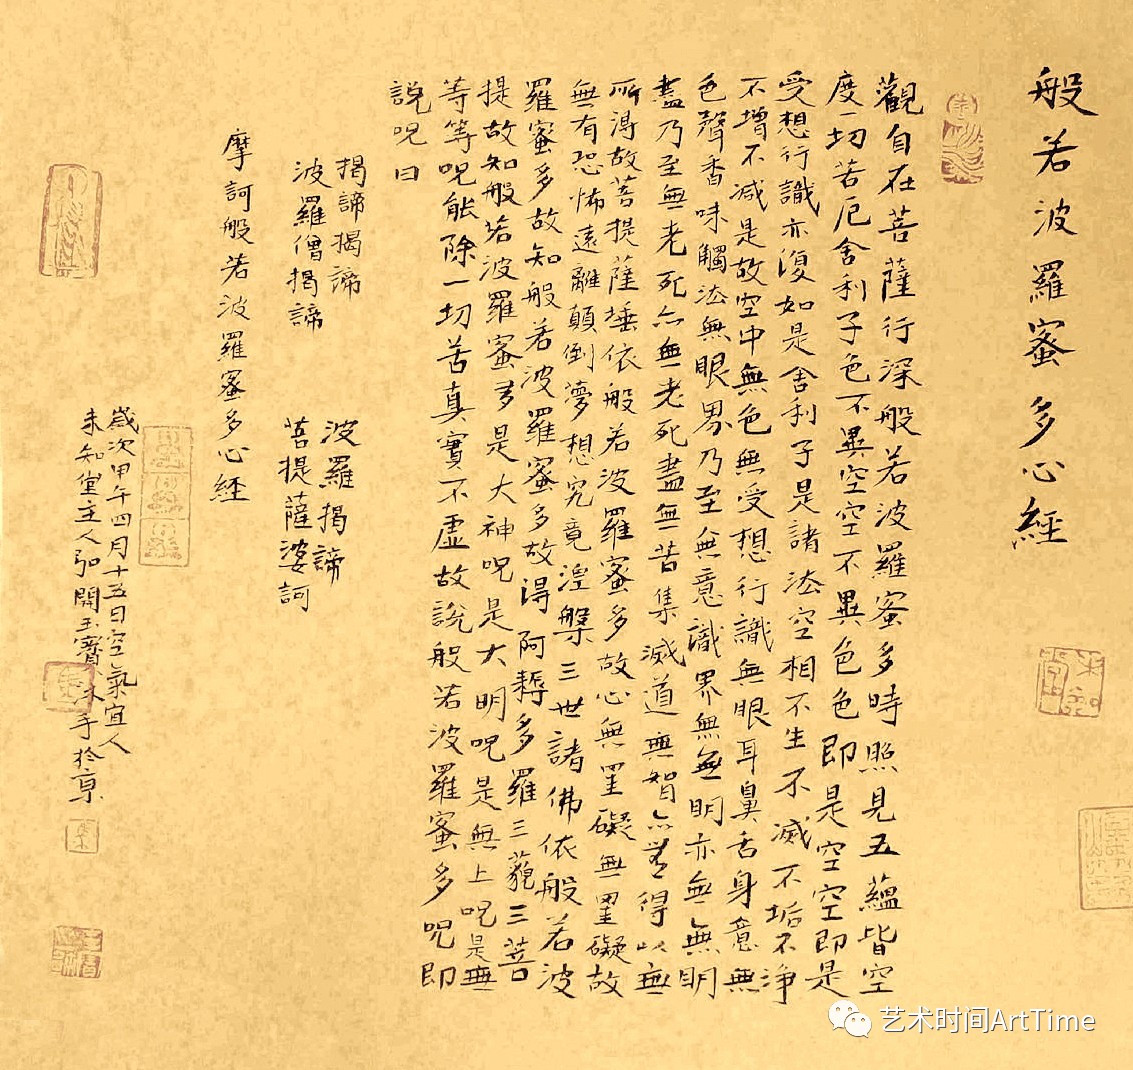 般若波羅蜜多心經
觀自在菩薩行深般若波羅蜜多時照見五蘊皆空
度一切苦厄舍利子色不異空空不異色色即是空空即是
受想行識亦復如是舍利子是諸法空相不生不滅不垢不淨
不增不減是故空中無色無受想行識無眼耳鼻舌身意無
色聲香味觸法無眼界乃至無意識界無無明亦無無明
盡乃至無老死亦無老死盡無苦集滅道無智亦無得以無
所得故菩提薩埵依般若波羅蜜多故心無罣礙無罣礙故
無有恐怖遠離顛倒夢想究竟涅槃三世諸佛依般若波
羅蜜多故知般若波羅蜜多故得阿耨多羅三藐三菩
提故知般若波羅蜜多是大神呪是大明呪是無上呪是無
等等呪能除一切苦真實不虛故說般若波羅蜜多呪即
說呪曰
揭諦揭諦 波羅揭諦
波羅僧揭諦 菩提薩婆訶
摩訶般若波羅蜜多心經
歲次甲午四月十五日空氣宜人
未知堂主人 開玉寶 手於京
艺术时间ArtTime